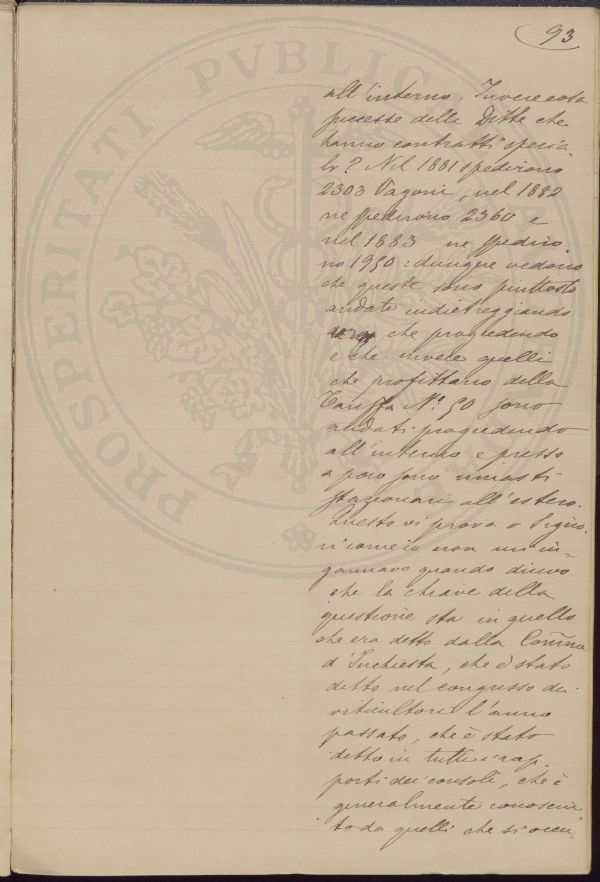 93
PROSPERITATI PVBLIC
all'interno. Invece cosa
successe delle Ditte che
hanno contratti specia
li? Nel 1881 spedirono
2303 Vagoni, nel 1882
ne spedirono 2360 e
nel 1883 ne spediro
no 1950: dunque vedono
che queste sono piuttosto
andate indietreggiando
che progredendo
e che invece quelli
che profittano della
Tariffa N.º 50 sono
andati progredendo
all'interno e presso
a poco sono rimasti
stazionari all'estero.
Questo vi prova o Signo.
ri come io non m'in=
gannavo quando dicevo
che la chiave della
questione sta in quello
che era detto dalla Comm̃a
d'Inchiesta, che è stato
detto nel congresso dei
viticultori l'anno
passato, che è stato
detto in tutti i rap.
porti dei consoli, che è
generalmente conosciu
to da quelli che si occu=